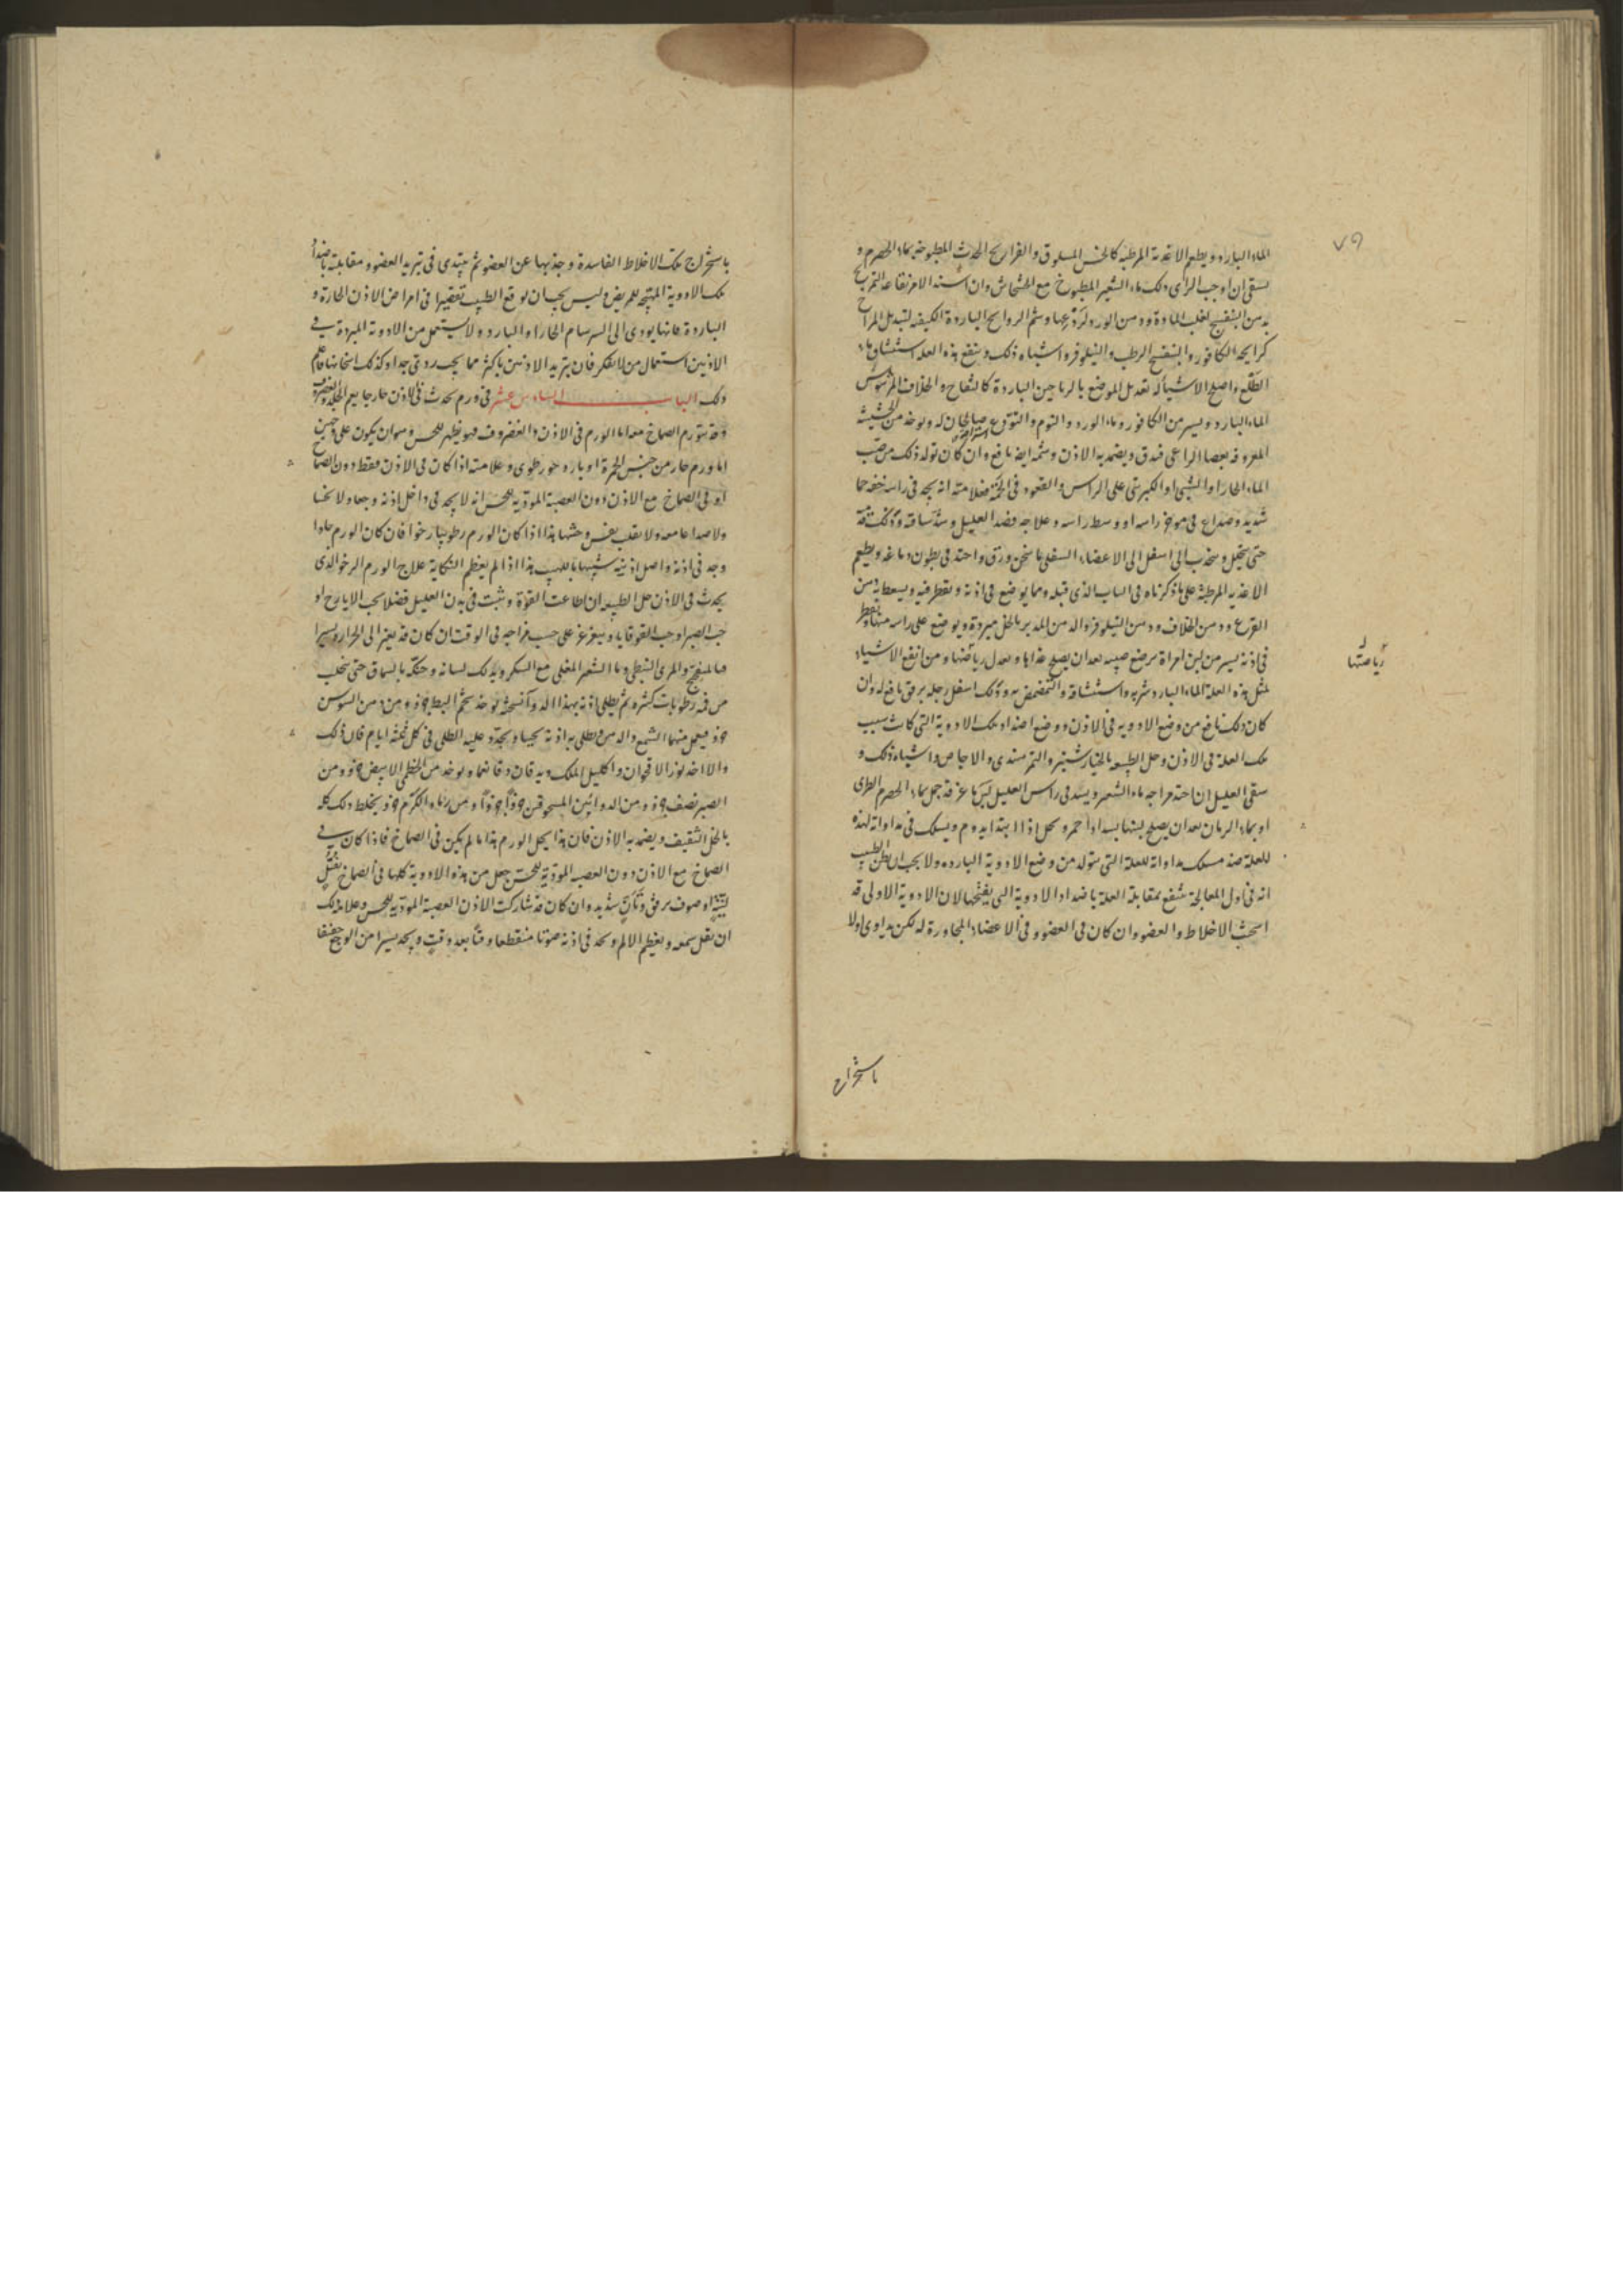 ٧٩
الماء البارد ويطعم الاغذية المرطبة كالخس المسلوق والفراريج الحدث المطبوخة بماء الحصرم و
يسقى ان اوجب الراى ذلك ماء الشعير المطبوخ مع الخشخاش وان اشتد الامر
البنفسج ودهن الورد وشم الروائح الباردة الكيفية لتبديل المزاج
كرايحة الكافور والبنفسج الرطب والنيلوفر واشباه ذلك وينفع هذه العلة استنشاق ماء
الطلع واصلح الاشياء له تعديل الموضع بالرياحين الباردة كالتفاح والخلاف المرشوش
الماء البارد ويسير من الكافور وماء الورد ويوخذ من الحشيشة
المعروفة بعصا الراعى فيدق ويضمد به الاذن وشمه ايضا نافع وان كان تولد ذلك من صب
الماء الحار او الشبى او الكبريتى على الراس والقعود فى الحمة فعلامته انه يجد فى راسه خفة حما
شديد وصداع فى موخر راسه او وسط راسه وعلاجه فصد العليل وشد ساقه
حتى ينحل وينجذب الى اسفل الى الاعضاء السفلى ما سخن ورق واحتد فى بطون دماغه ويطعم
الاغذيه المرطبة على ما ذكرناه فى الباب الذى قبله ومما يوضع فى اذنه ويقطر فيه ويسعط به دهن
القرع ودهن الخلاف ودهن النيلوفر والدهن المدبر بالخل مبردة ويوضع على راسه منها ويقطر
فى اذنه يسير من لبن امراة مرضع صبيه بعد ان يصلح غذاها ويعدل رياضتها ومن انفع الاشياء
رياضتها
لمثل هذه العلة الماء البارد شربه واستنشاقه والتمضمض به ودلك اسفل رجله برفق نافع له وان
كان ذلك نابع من وضع الادويه فى الاذن ووضع اضداد تلك الادوية التى كانت سبب
تلك العلة فى الاذن وحل الطبيعه بالخيارشنبر والتمر هندى والاجاص واشباه ذلك و
سقى العليل ان احتد مزاجه ماء الشعير ويشد فى راس العليل بماء الحصرم الطرى
او بماء الرمان بعد ان يصلح
للعلة ضد مسلك مداواته للعلة التى تتولد من وضع الادوية البارده ولا يجب ان يظن الطبيب
انه فى اول المعالجة ينتفع بمقابلة العلة باضداد الادوية التى هيجتها لان الادوية الاولى قد
اسخنت الاخلاط والعضو وان كان فى العضو وفى الاعضاء المجاورة له لكن يداوى اولا
باستخراج
باستخراج تلك الاخلاط الفاسدة وجذبها عن العضو ثم يبتدى فى تبريد العضو ومقابلته باضداد
تلك الادوية المهيجه للمريض وليس يجب ان يوقع الطبيب تقصيرا فى امراض الاذن الحارة و
الباردة فانها يودى الى السرسام الحار او البارد ولا يستعمل من الادوية المبردة فى
الاذنين استعمال من لا يفكر فان تبريد الاذنين باكثر مما يجب ردى جدا وكذلك اسخانها فاعلم
ذلك الباب السادس عشر فى ورم يحدث فى الاذن خارجا يعم الجلد والغضروف
وقد يتورم الصماخ معه اما الورم فى الاذن والغضروف فهو يظهر للحس وهو ان يكون على وجهين
اما ورم حار من جنس الحمرة او بارد خو رطوبى وعلامته اذا كان فى الاذن فقط دون الصماخ
او فى الصماخ مع الاذن دون العصبة المودية للحس انه لا يجد فى داخل اذنه وجعا ولا نخسا
ولا صداعا معه ولا تقلب نفس وحشها هذا اذا كان الورم رطوبيا رخوا فان كان الورم حادا
وجد فى اذنه واصل اذنيه شبيها باللهيب هذا اذا لم يعظم النكاية علاج الورم الرخو الذى
يحدث فى الاذن حل الطبيعه ان اطاعت القوة وثبت فى بدن العليل فضلا بحب الايارج او
حب الصبر او حب القوقايا ويغرغر على حسب مزاجه فى الوقت ان كان قد يغير الى الحرارة يسيرا
فبالمبفختج والمرى النبطى وماء الشعير المغلى مع السكر ويدلك لسانه وحنكه بالسماق حتى ينجلب
من فمه رطوبات كثيره ثم يطلى اذنه بهذا الدوآ نسخته يوخذ شحم البط جزو ومن دهن السوسن
جزو فيعمل منهما الشمع والدهن ويطلى به اذنه يحييا ويجدد عليه الطلى فى كل ثلثه ايام فان ذلك
والا اخذ بزر الاقحوان واكليل الملك ويدقان دقا ناعما ويوخذ من الخطمى الابيض جزو ومن
الصبر نصف جزو ومن الدوائين المسحوقين جزوًا جزوًا ومن رماد الكرم جزو يخلط ذلك كله
بالخل الثقيف ويضمد به الاذن فان هذا يحل الورم هذا ما لم يكن فى الصماخ فاذا كان فى
الصماخ مع الاذن دون العصب المودية للحس جعل من هذه الادوية كلها فى الصماخ بفتل
لينه او صوف برفق وتأن شديد وان كان قد شاركت الاذن العصبة المودية للحس وعلامة ذلك
ان يقل سمعه ويعظم الالم ويجد فى اذنه صوتا منقطعا وقتًا بعد وقت ويجد يسيرا من الوجع